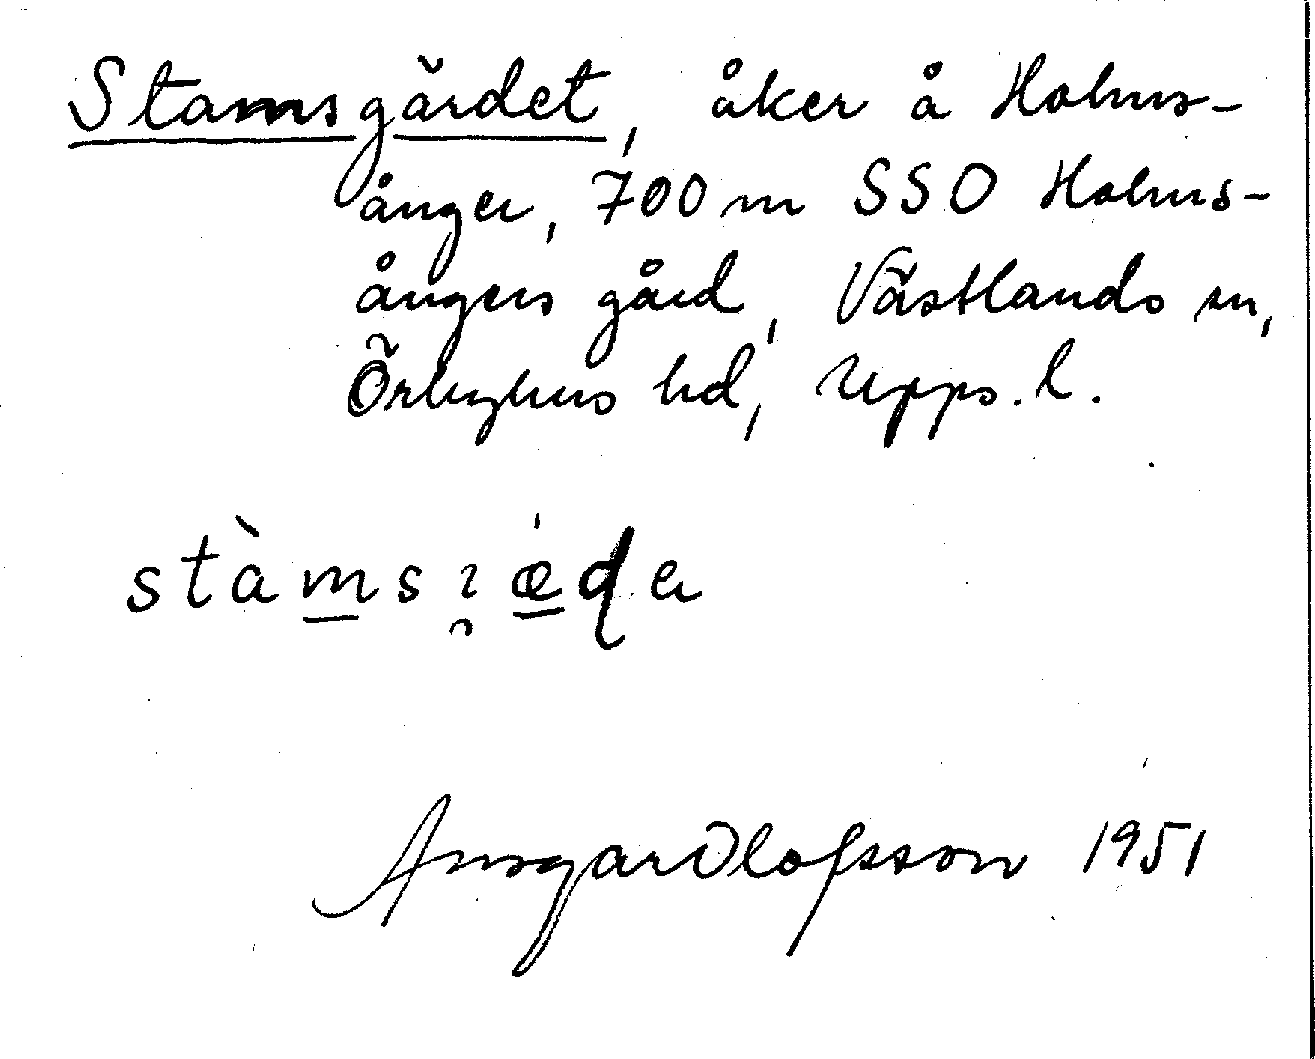 Stamsgärdet, åker å Holms-
ånger, 700 m SSO Holms-
ångers gård, Västlands sn,
Örbyhus hd, Upps. l.
Ansgar Olofsson 1951